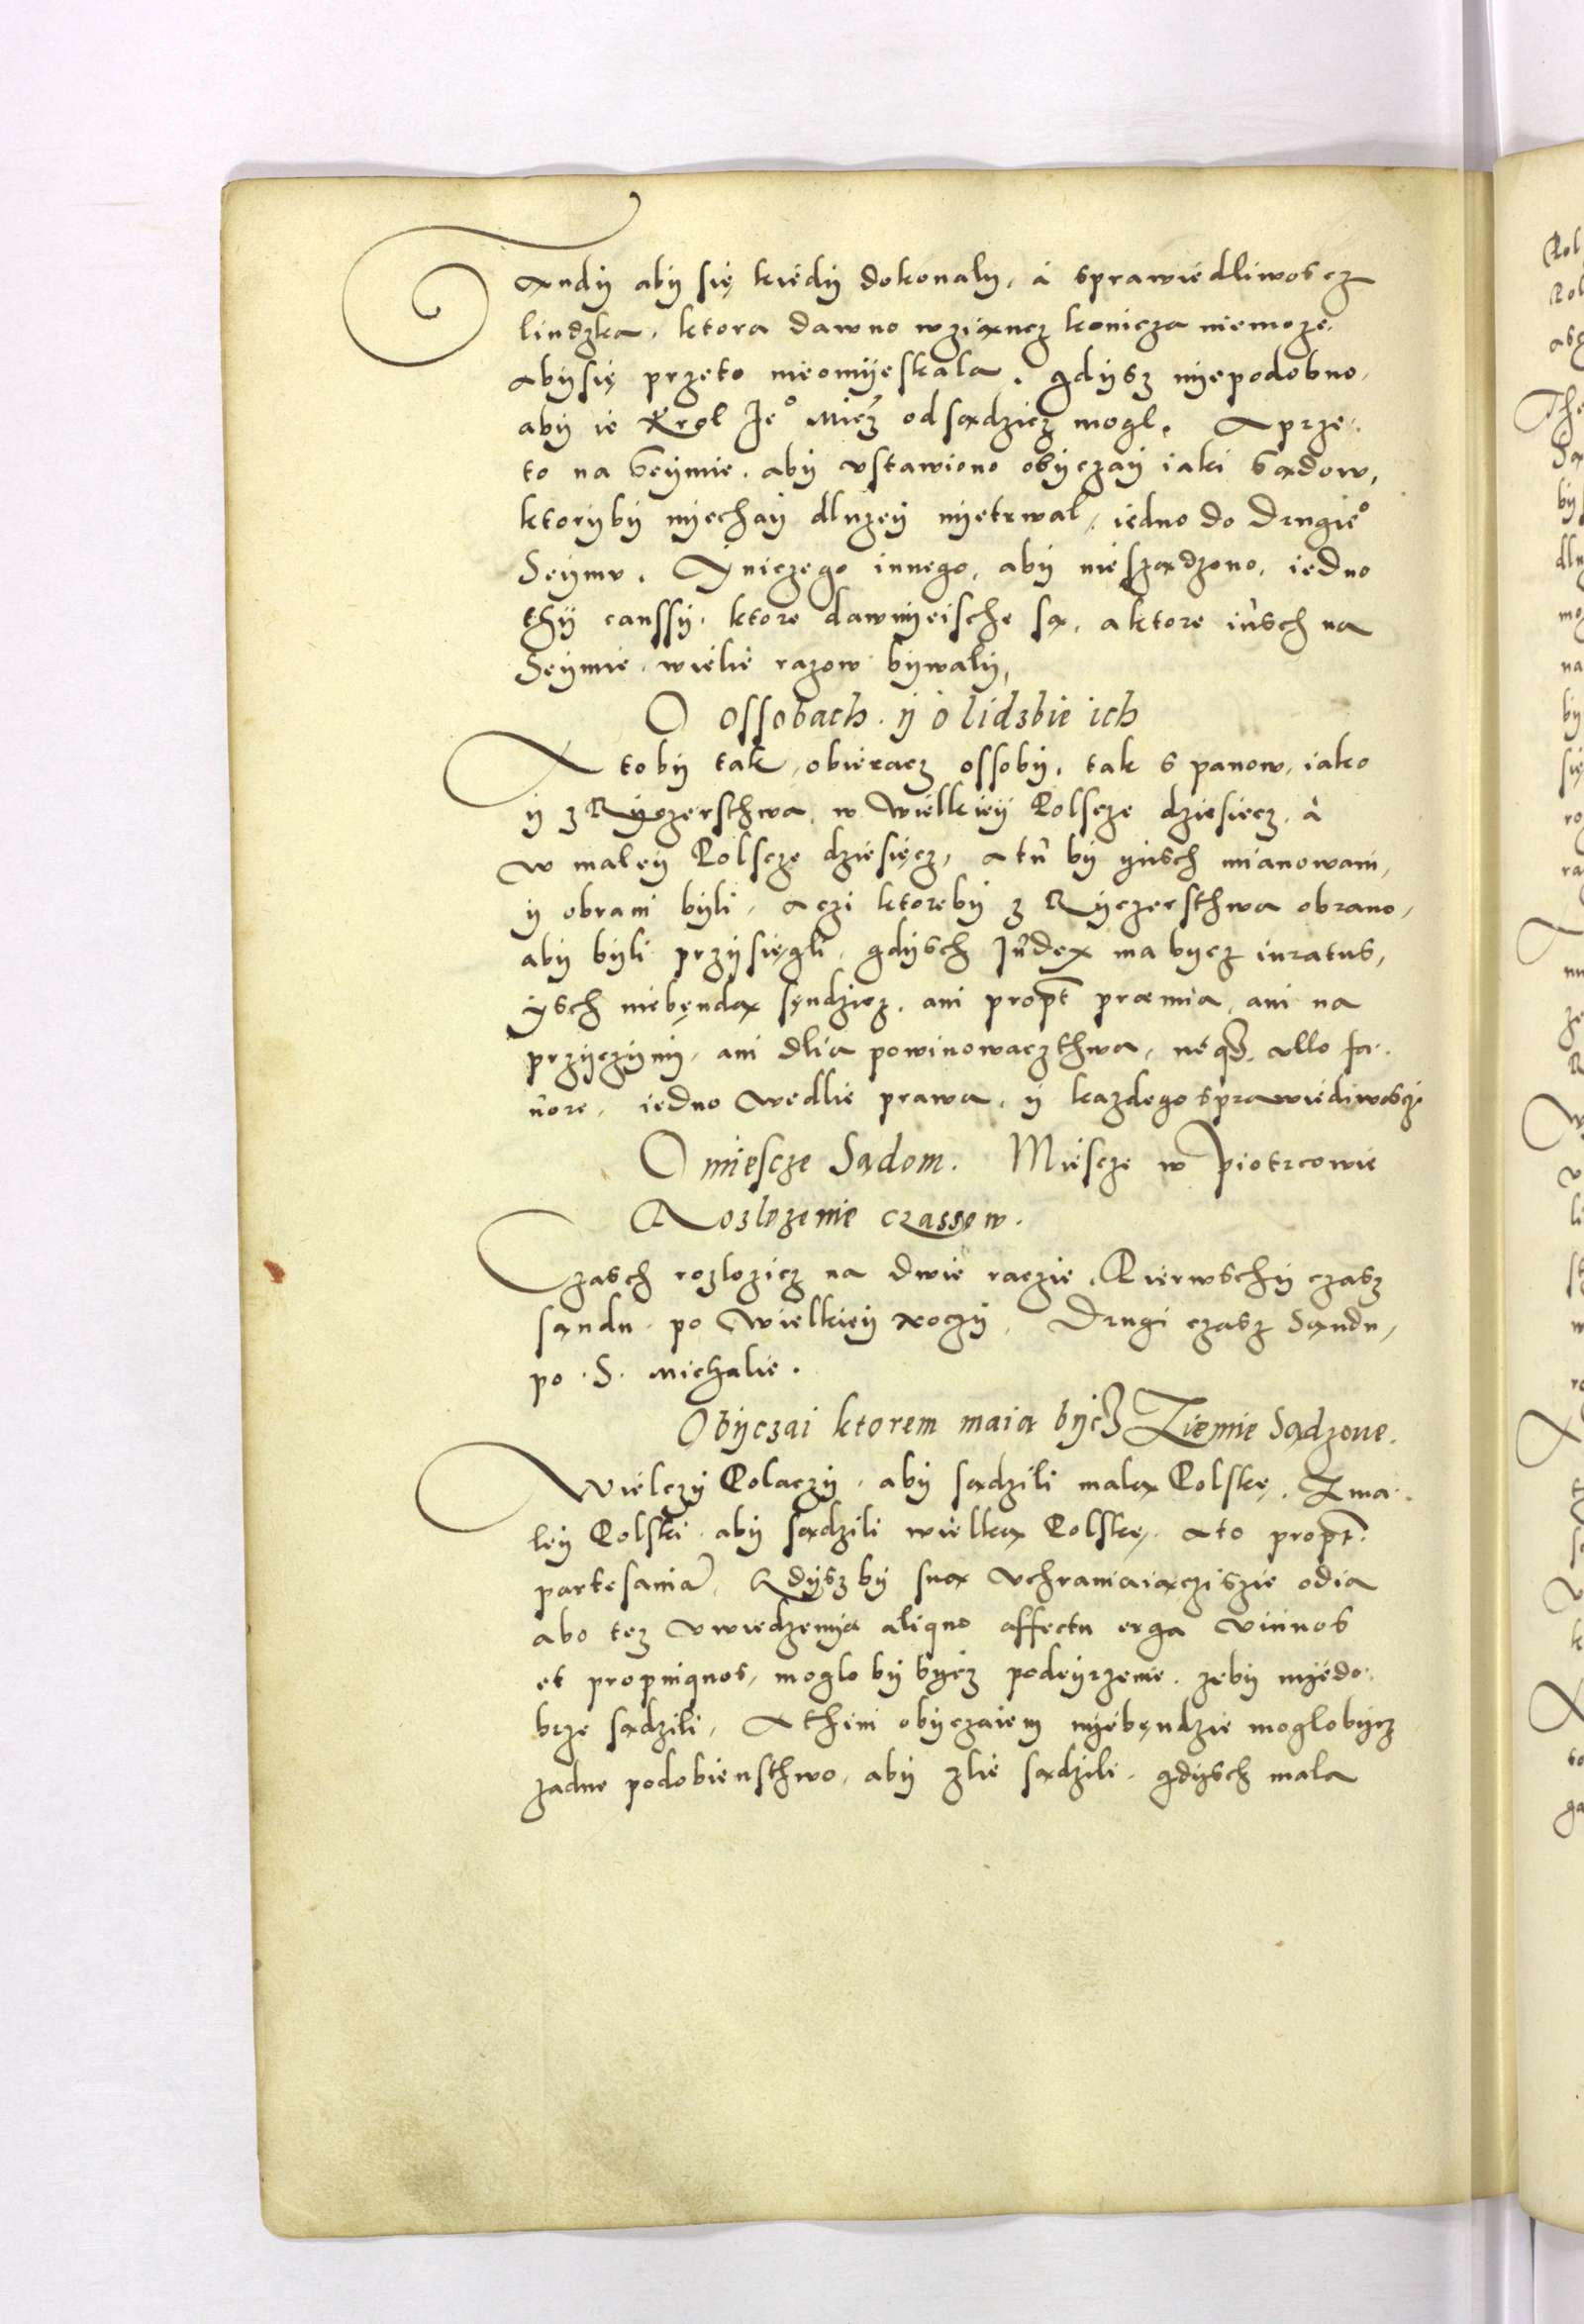 Sandy aby się kiedy dokonaly, a sprawiedliwoscz
liudzka, ktora dawno wziancz koncza niemoze.
abysię przeto nieomyeskala, gdysz niepodobno,
aby ie Krol Je° Mićz odsądzicz mogl. A prze-
to na Seymie, aby ustawiono obyczay iaki Sądow,
ktoryby niechay dluzey nietrwal, iedno do Drugie°
Seymu. Y niczego innego, aby nieszadzono, iedno
thy caussy, ktore dawnyeische są, a ktore iusch na
Seymie wielie razow bywaly,
O ossobach. y o lidzbie ich
A toby tak, obieracz ossoby, tak s panow, iako
y z Ryczersthwa, w Wielkiey Polscze dziesiecz, a
w maley Polscze dziesięcz, a tu by yusch mianowani,
y obrani byli, a czi ktoreby z Ryczersthwa obrano,
aby byli przysięgli, gdysch Judex ma bycz iuratus,
ysch niebęndą sęndzicz, ani propt praemia, ani na
przyczyny, ani dlia powinowaczthwa, neq3 ullo fa-
uore, iedno wedlie prawa, y kazdego sprawiediwosczi
O miescze Sadom. Miescze w Piotrcowie
Rozlozenie czassow.
Czasch rozlozicz na dwie raczie. Pierwschy czasz
sandu po Wielkiey noczy. Drugi czasz Sandu,
po .S. Michalie.
Obyczai ktorem maia byćz Ziemie Sądzone.
Wielczy Polaczy, aby sądzili malą Polskę. Z ma-
ley Polski aby sądzili wielką Polskę, a to propt
partesania, Gdysz by sną uchraniaiącziszie odia
abo tez uwiedzenia aliquo affectu erga vicinos
et propinquos, moglo by byćz podeyrzenie, zeby niedo-
brze sądzili, A thym obyczaiem niebęndzie moglobycz
zadne podobiensthwo, aby zlie sądzili, gdysch mala